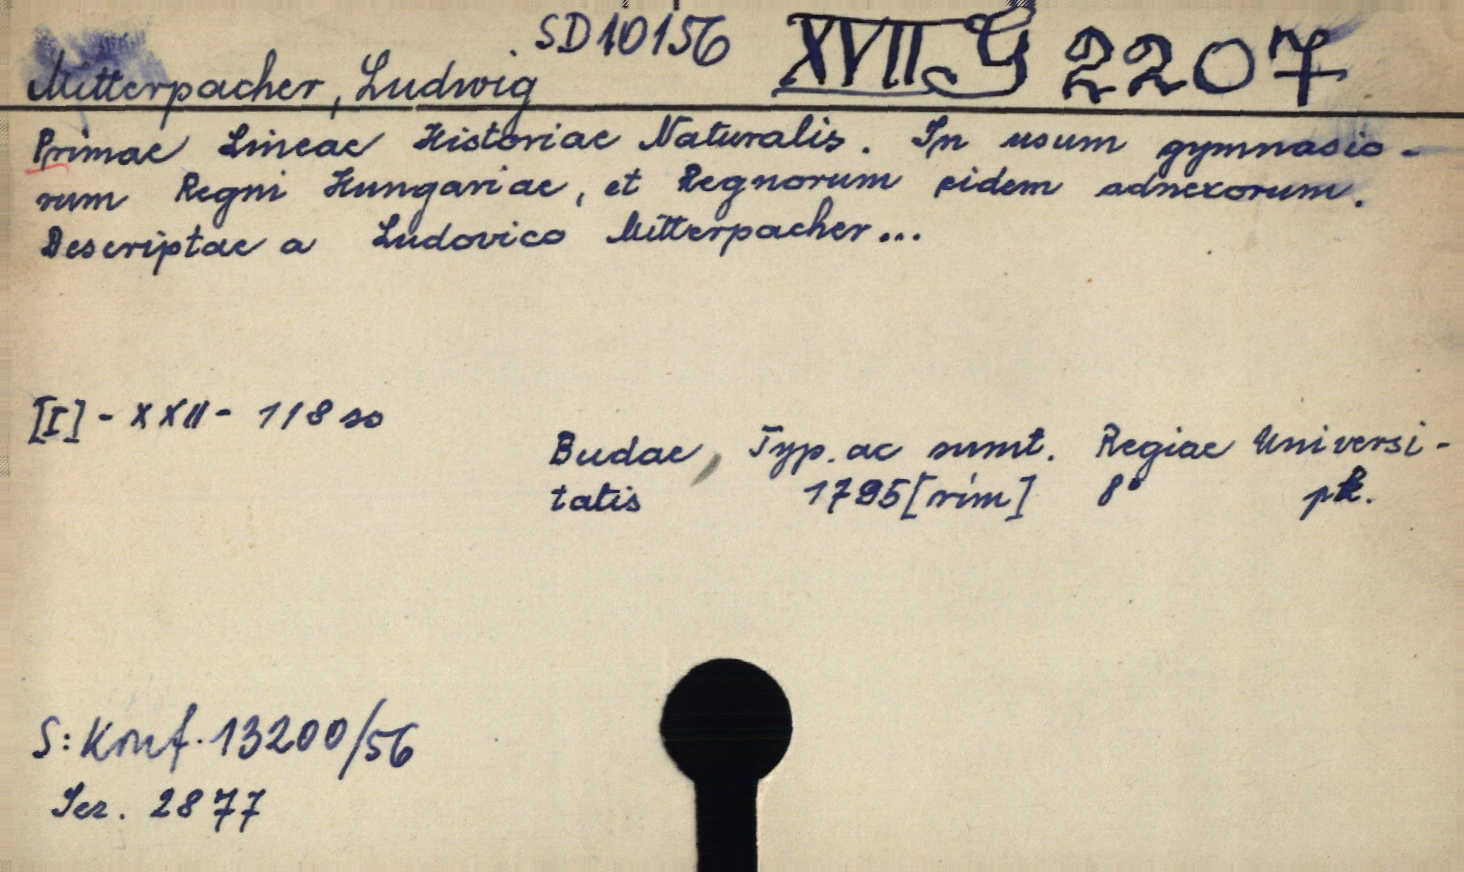 SD10156 XVII G 2207
Mitterpacher, Ludwig
Primae Lineae Historiae Naturalis. In usum gymnasio-
rum Regni Hungariae, et Regnorum eidem adnexorum.
Descriptae a Ludovico Mitterpacher...
[I] - XXII - 118 so
Budae, Typ. ac sumt. Regiae Universi-
tatis 1795 [rim] 8°
S: Konf. 13200/56
Ser. 2877